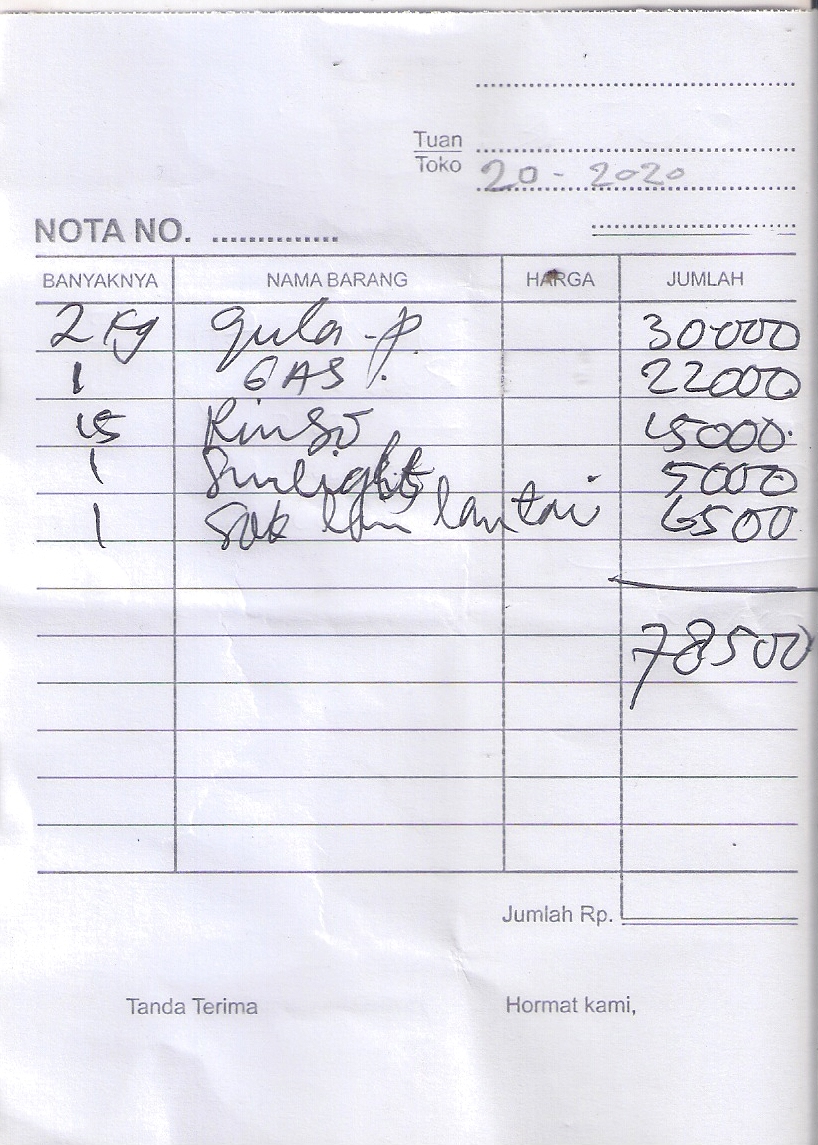 Tuan
Toko 20 - 2020
NOTA NO. ..............
BANYAKNYA NAMA BARANG HARGA JUMLAH
2 Kg gula - p. 30000
1 GAS . 22000
15 Rinso 15000
1 Sunlight 5000
1 lantai 6500
78500
Jumlah Rp.
Tanda Terima Hormat kami,